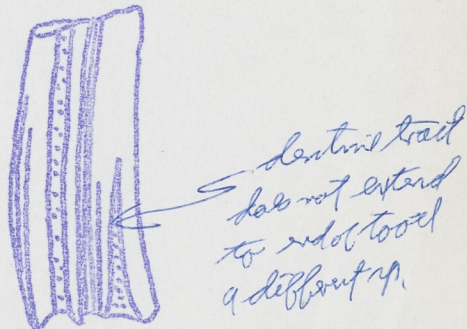 dentine tract
does not extend
to end of tooth
a different sp.